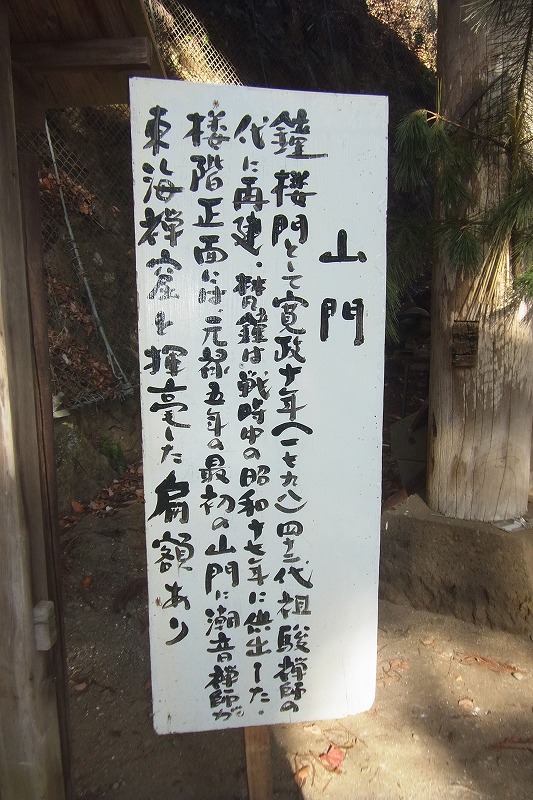 山門
鐘楼門として寛政十年(一七九八)四十二代祖駿禅師の
代に再建・梵鐘は戦時中の昭和十七年に供出した・
楼階正面には、元禄五年の最初の山門に潮音禅師が
東海禅窟と揮毫した扁額あり